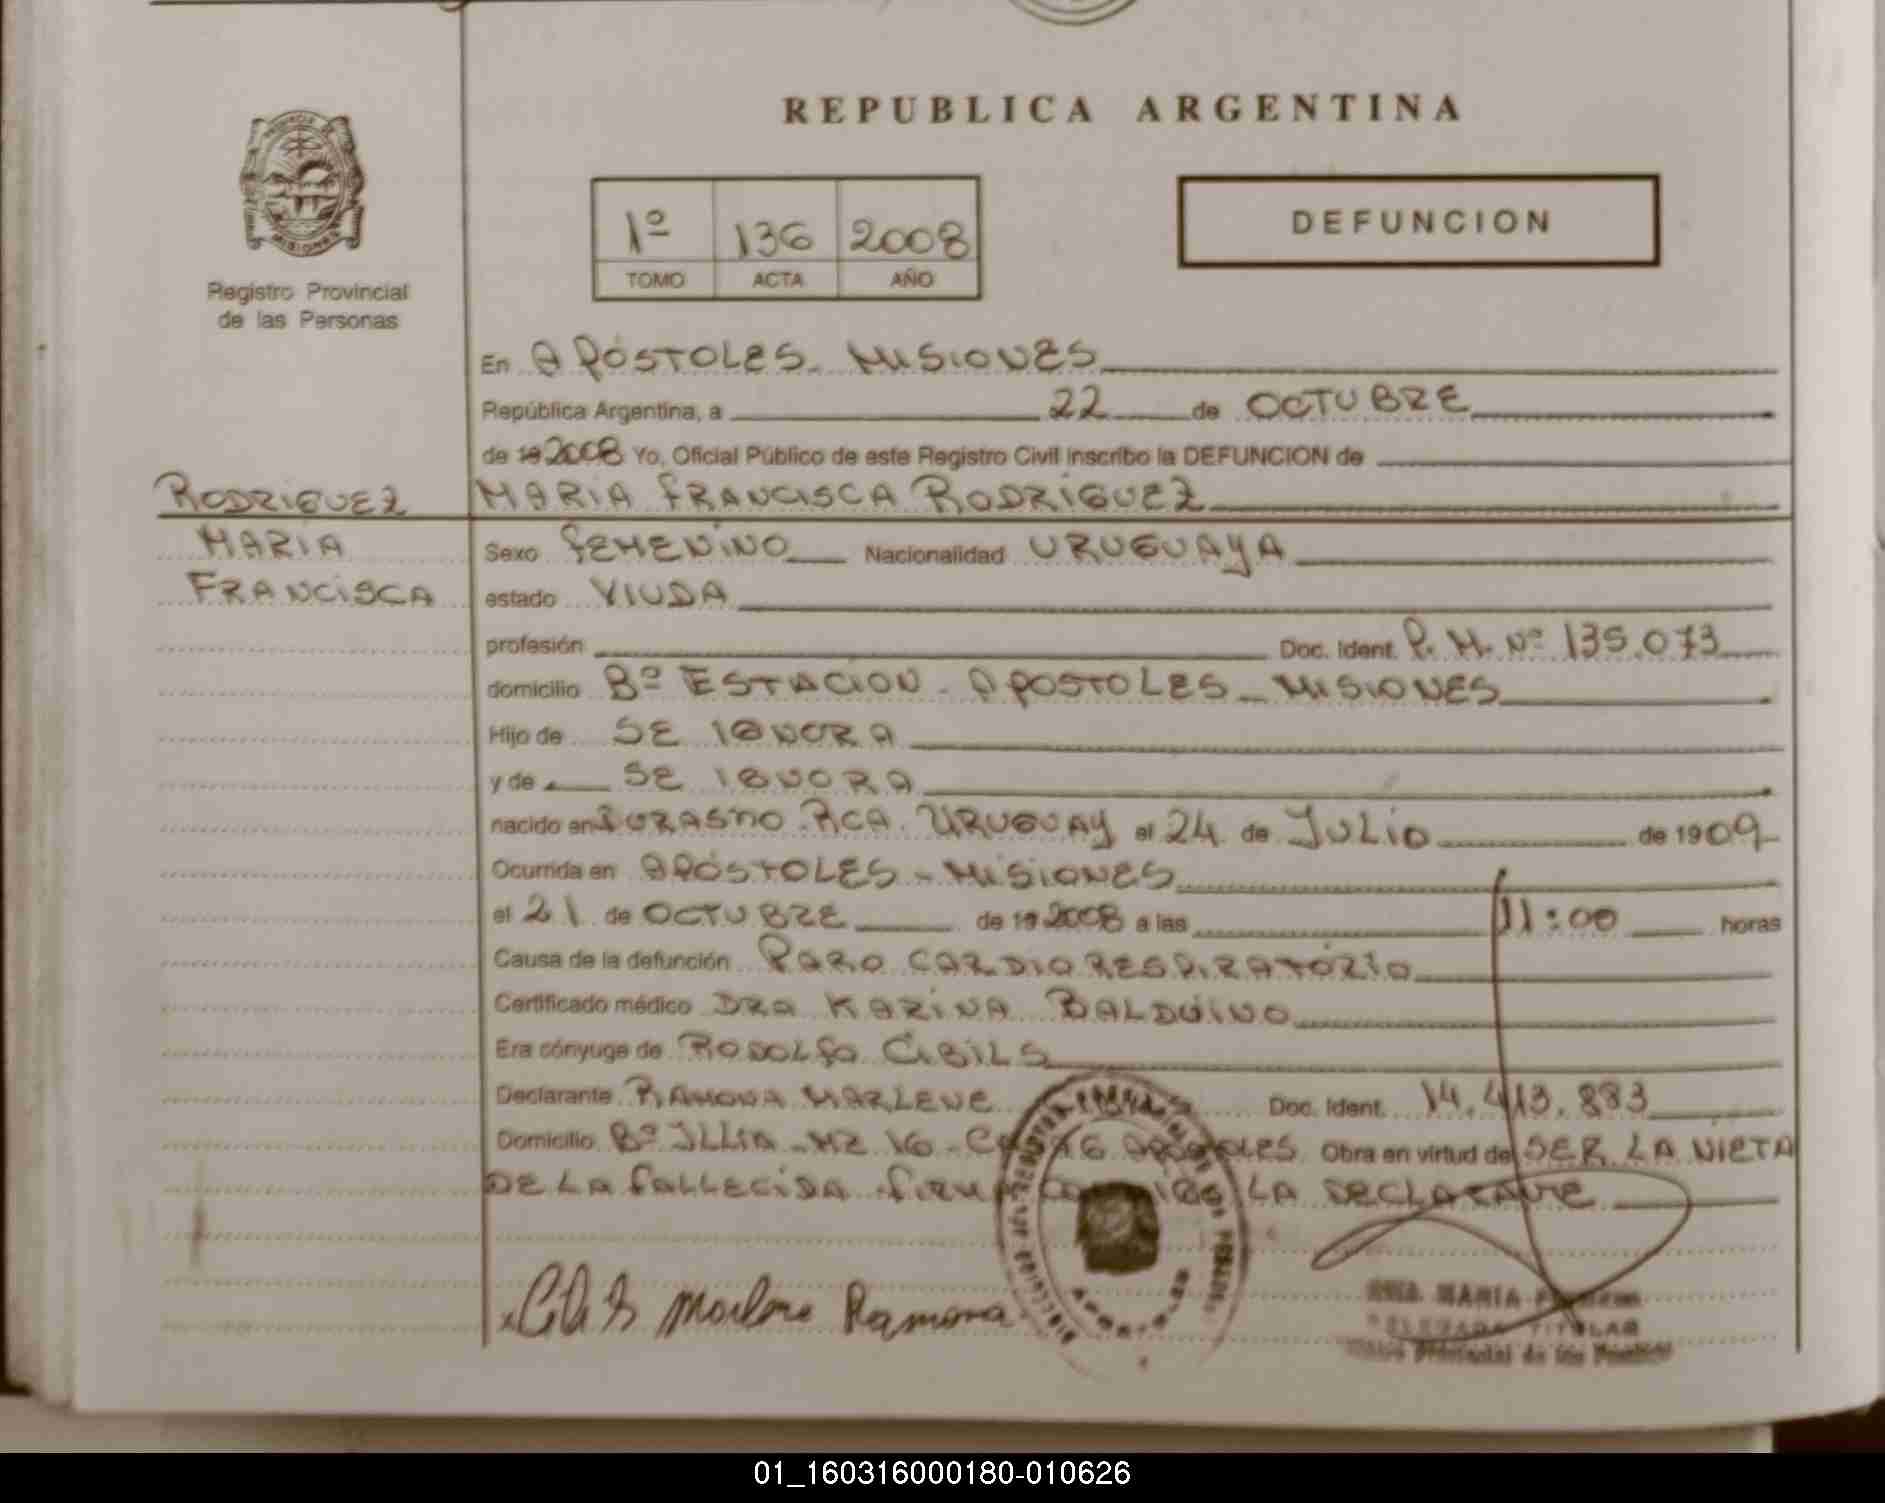 REPUBLICA ARGENTINA
1º 136 2008
TOMO ACTA AÑO
DEFUNCION
Registro Provincial
de las Personas
En APÓSTOLES - MISIONES
República Argentina, a 22 de OCTUBRE
de 19 2008 Yo, Oficial Público de este Registro Civil inscribo la DEFUNCION de
RODRIGUEZ
MARIA FRANCISCA RODRIGUEZ
MARIA
FRANCISCA
Sexo FEMENINO Nacionalidad URUGUAYA
estado VIUDA
profesión Doc. Ident. P. M. Nº 135.073
domicilio Bº ESTACION - APOSTOLES - MISIONES
Hijo de SE IGNORA
y de SE IGNORA
nacido en RCA. URUGUAY el 24 de JULIO de 1909
Ocurrida en APÓSTOLES - MISIONES
el 21 de OCTUBRE de 19 2008 a las 11:00 horas
Causa de la defunción PARO CARDIORESPIRATÓRIO
Certificado médico DRA KARINA BALDUINO
Era cónyuge de RODOLFO CIBILS
Declarante RAMONA MARLENE Doc. Ident. 14.413.883
Domicilio Bº ILLIA - MZ 16 - APOSTOLES Obra en virtud de SER LA NIETA
DE LA FALLECIDA - FIRMA LA DECLARANTE
Marlene Ramona
MARIA
TITULAR
01_160316000180-010626